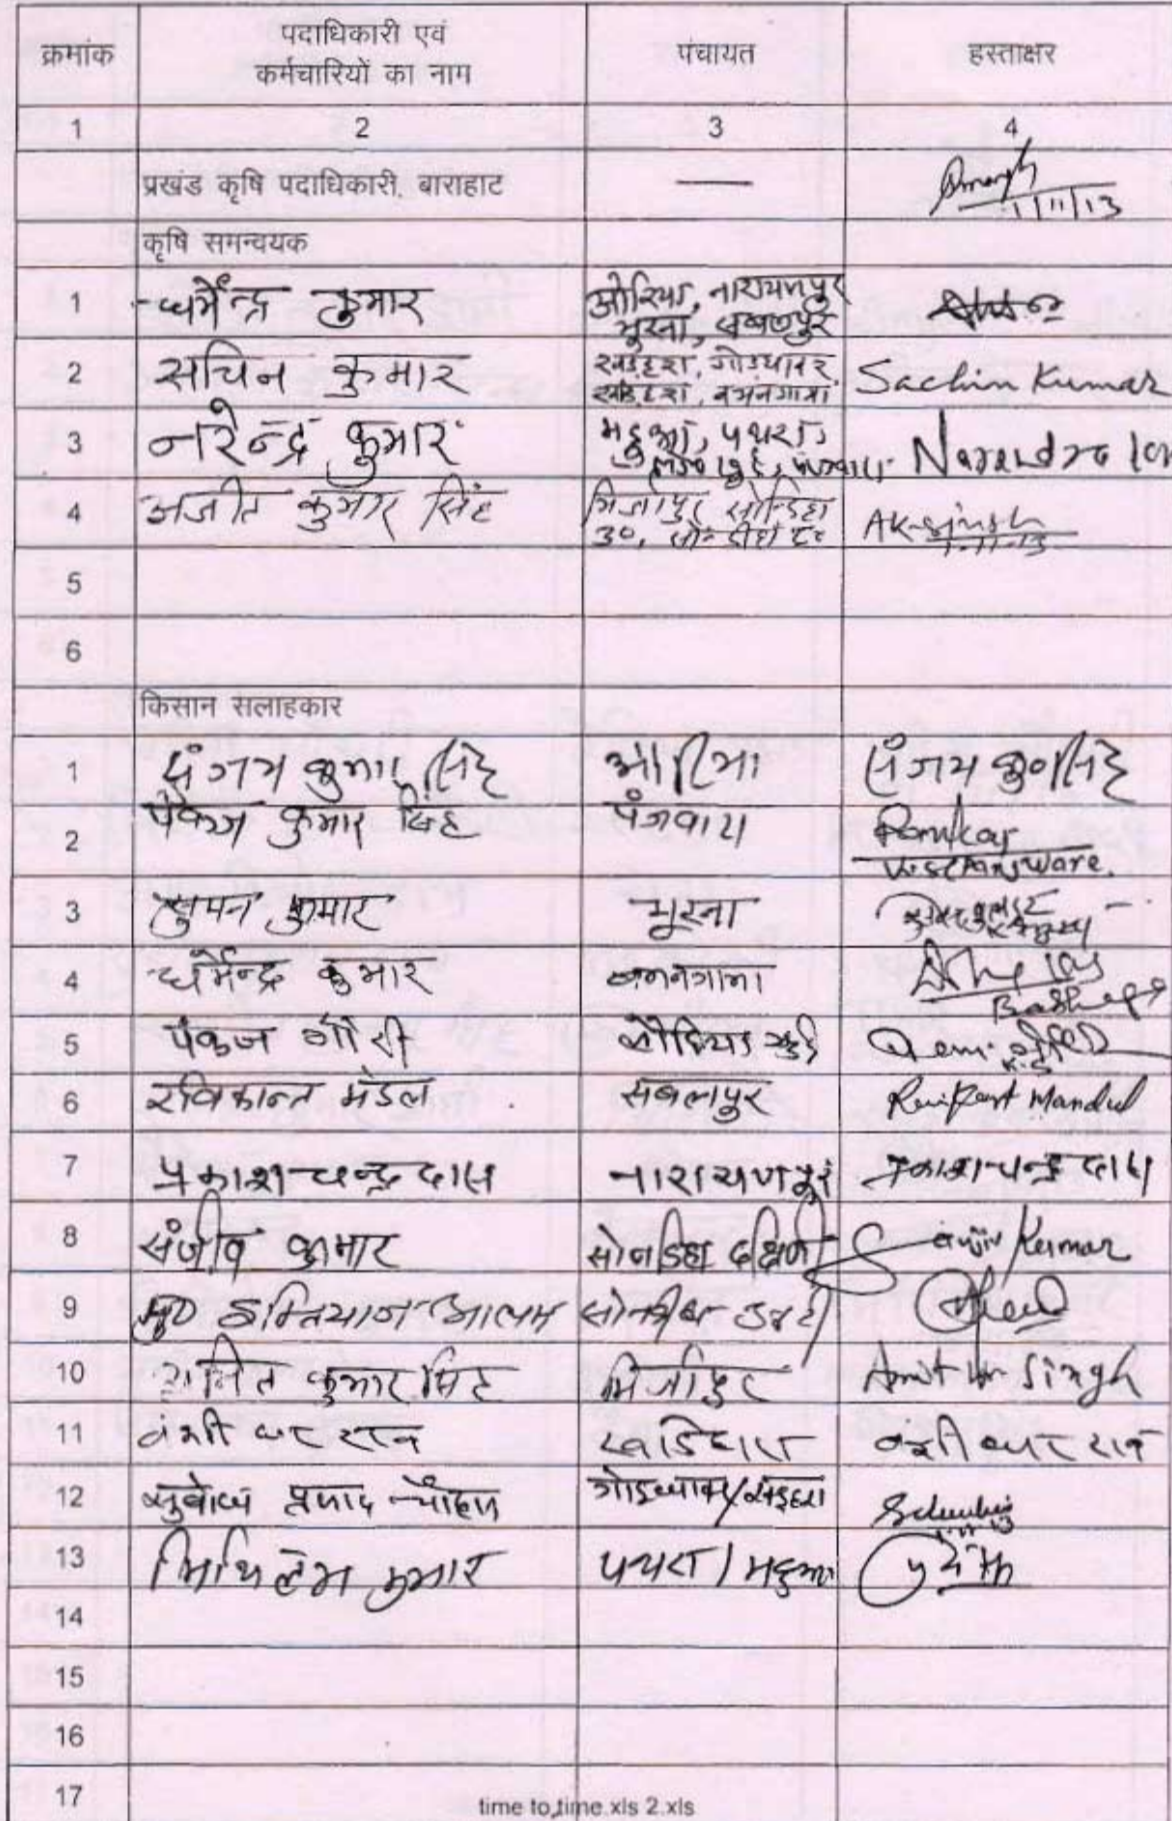 क्रमांक पदाधिकारी एवं कर्मचारियों का नाम पंचायत हस्ताक्षर
1 2 3 4
प्रखंड कृषि पदाधिकारी, बाराहाट —
1/11/13
कृषि समन्वयक
1 धर्मेन्द्र कुमार औरिया, नारायणपुर
भूरना, सबलपुर
2 सचिन कुमार Sachin Kumar
3 नरेन्द्र कुमार महुआ, पथरा, Narendra
4 अजीत कुमार सिंह मिर्जापुर सोनडिहा
उ०, AK Singh
1.11.13
5
6
किसान सलाहकार
1 संजय कुमार सिंह औरिया संजय कु० सिंह
2 पंकज कुमार सिंह पंजवारा Pankaj
3 सुमन कुमार भूरना
4 धर्मेन्द्र कुमार बभनगामा
5 पंकज
6 रविकान्त मंडल सबलपुर Ravikant Mandal
7 प्रकाश चन्द्र दास नारायणपुर प्रकाश चन्द्र दास
8 संजीव कुमार सोनडिहा दक्षिणी Sanjiv Kumar
9 आलम
10 अमित कुमार सिंह मिर्जापुर Amit Kr Singh
11 वंशी धर राव खडिहारा वंशी धर राव
12 सुबोध प्रसाद चौहान
13 मिथिलेश कुमार पथरा / महुआ
14
15
16
17
time to,time.xls 2.xls